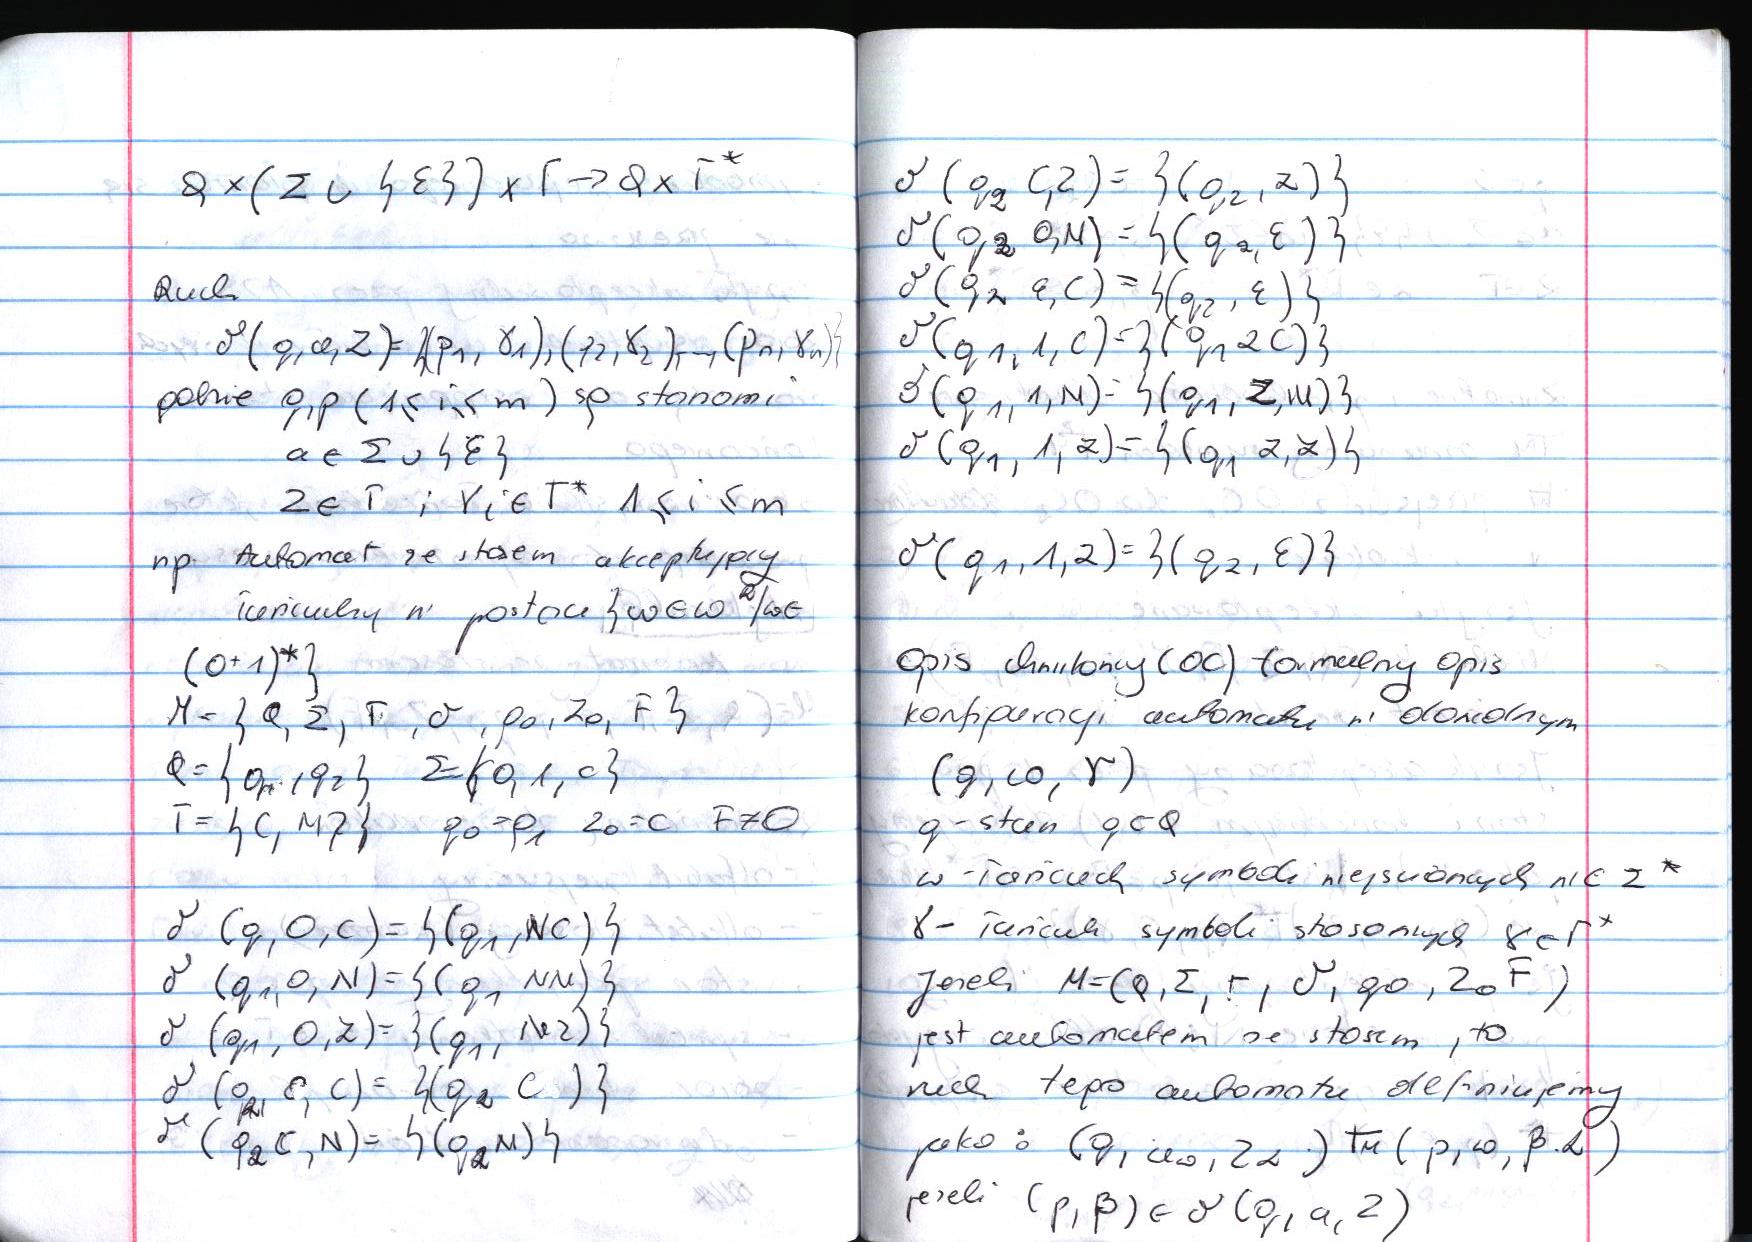 Q × (Σ ∪ {ε}) × Γ → Q × Γ*
Ruch
δ(q, a, Z) = {(p1, γ1), (p2, γ2), ..., (pn, γn)}
gdzie q, p (1 ≤ i ≤ m) są stanami
a ∈ Σ ∪ {ε}
Z ∈ Γ i γi ∈ Γ* 1 ≤ i ≤ m
np. Automat ze stosem akceptujący
łańcuchy w postaci {ωcω^R/ω∈
(0+1)*}
M = {Q, Σ, Γ, δ, q0, Z0, F}
Q = {q1, q2} Σ = {0, 1, c}
Γ = {C, N, Z} q0 = q1 Z0 = C F = ∅
δ (q, 0, C) = {(q1, NC)}
δ (q1, 0, N) = {(q1 NN)}
δ (q1, 0, Z) = {(q1, NZ)}
δ (q2, C, C) = {(q2 C)}
δ (q2 C, N) = {(q2 N)}
δ (q2 C, Z) = {(q2, Z)}
δ (q2 0, N) = {(q2, ε)}
δ (q2 ε, C) = {(q2, ε)}
δ (q1, 1, C) = {(q1 ZC)}
δ (q1, 1, N) = {(q1, Z, N)}
δ (q1, 1, Z) = {(q1 Z, Z)}
δ (q1, 1, Z) = {(q2, ε)}
Opis chwilowy (OC) formalny opis
konfiguracji automatu w dowolnym
(q, ω, γ)
q - stan q ∈ Q
ω - łańcuch symboli wejściowych w ∈ Σ*
γ - łańcuch symboli stosowych γ ∈ Γ*
Jeżeli M = (Q, Σ, Γ, δ, q0, Z0 F)
jest automatem ze stosem, to
ruch tego automatu definiujemy
jako: (q, aω, Zα) ⊢M (p, ω, β.α)
jeżeli (p, β) ∈ δ (q, a, Z)